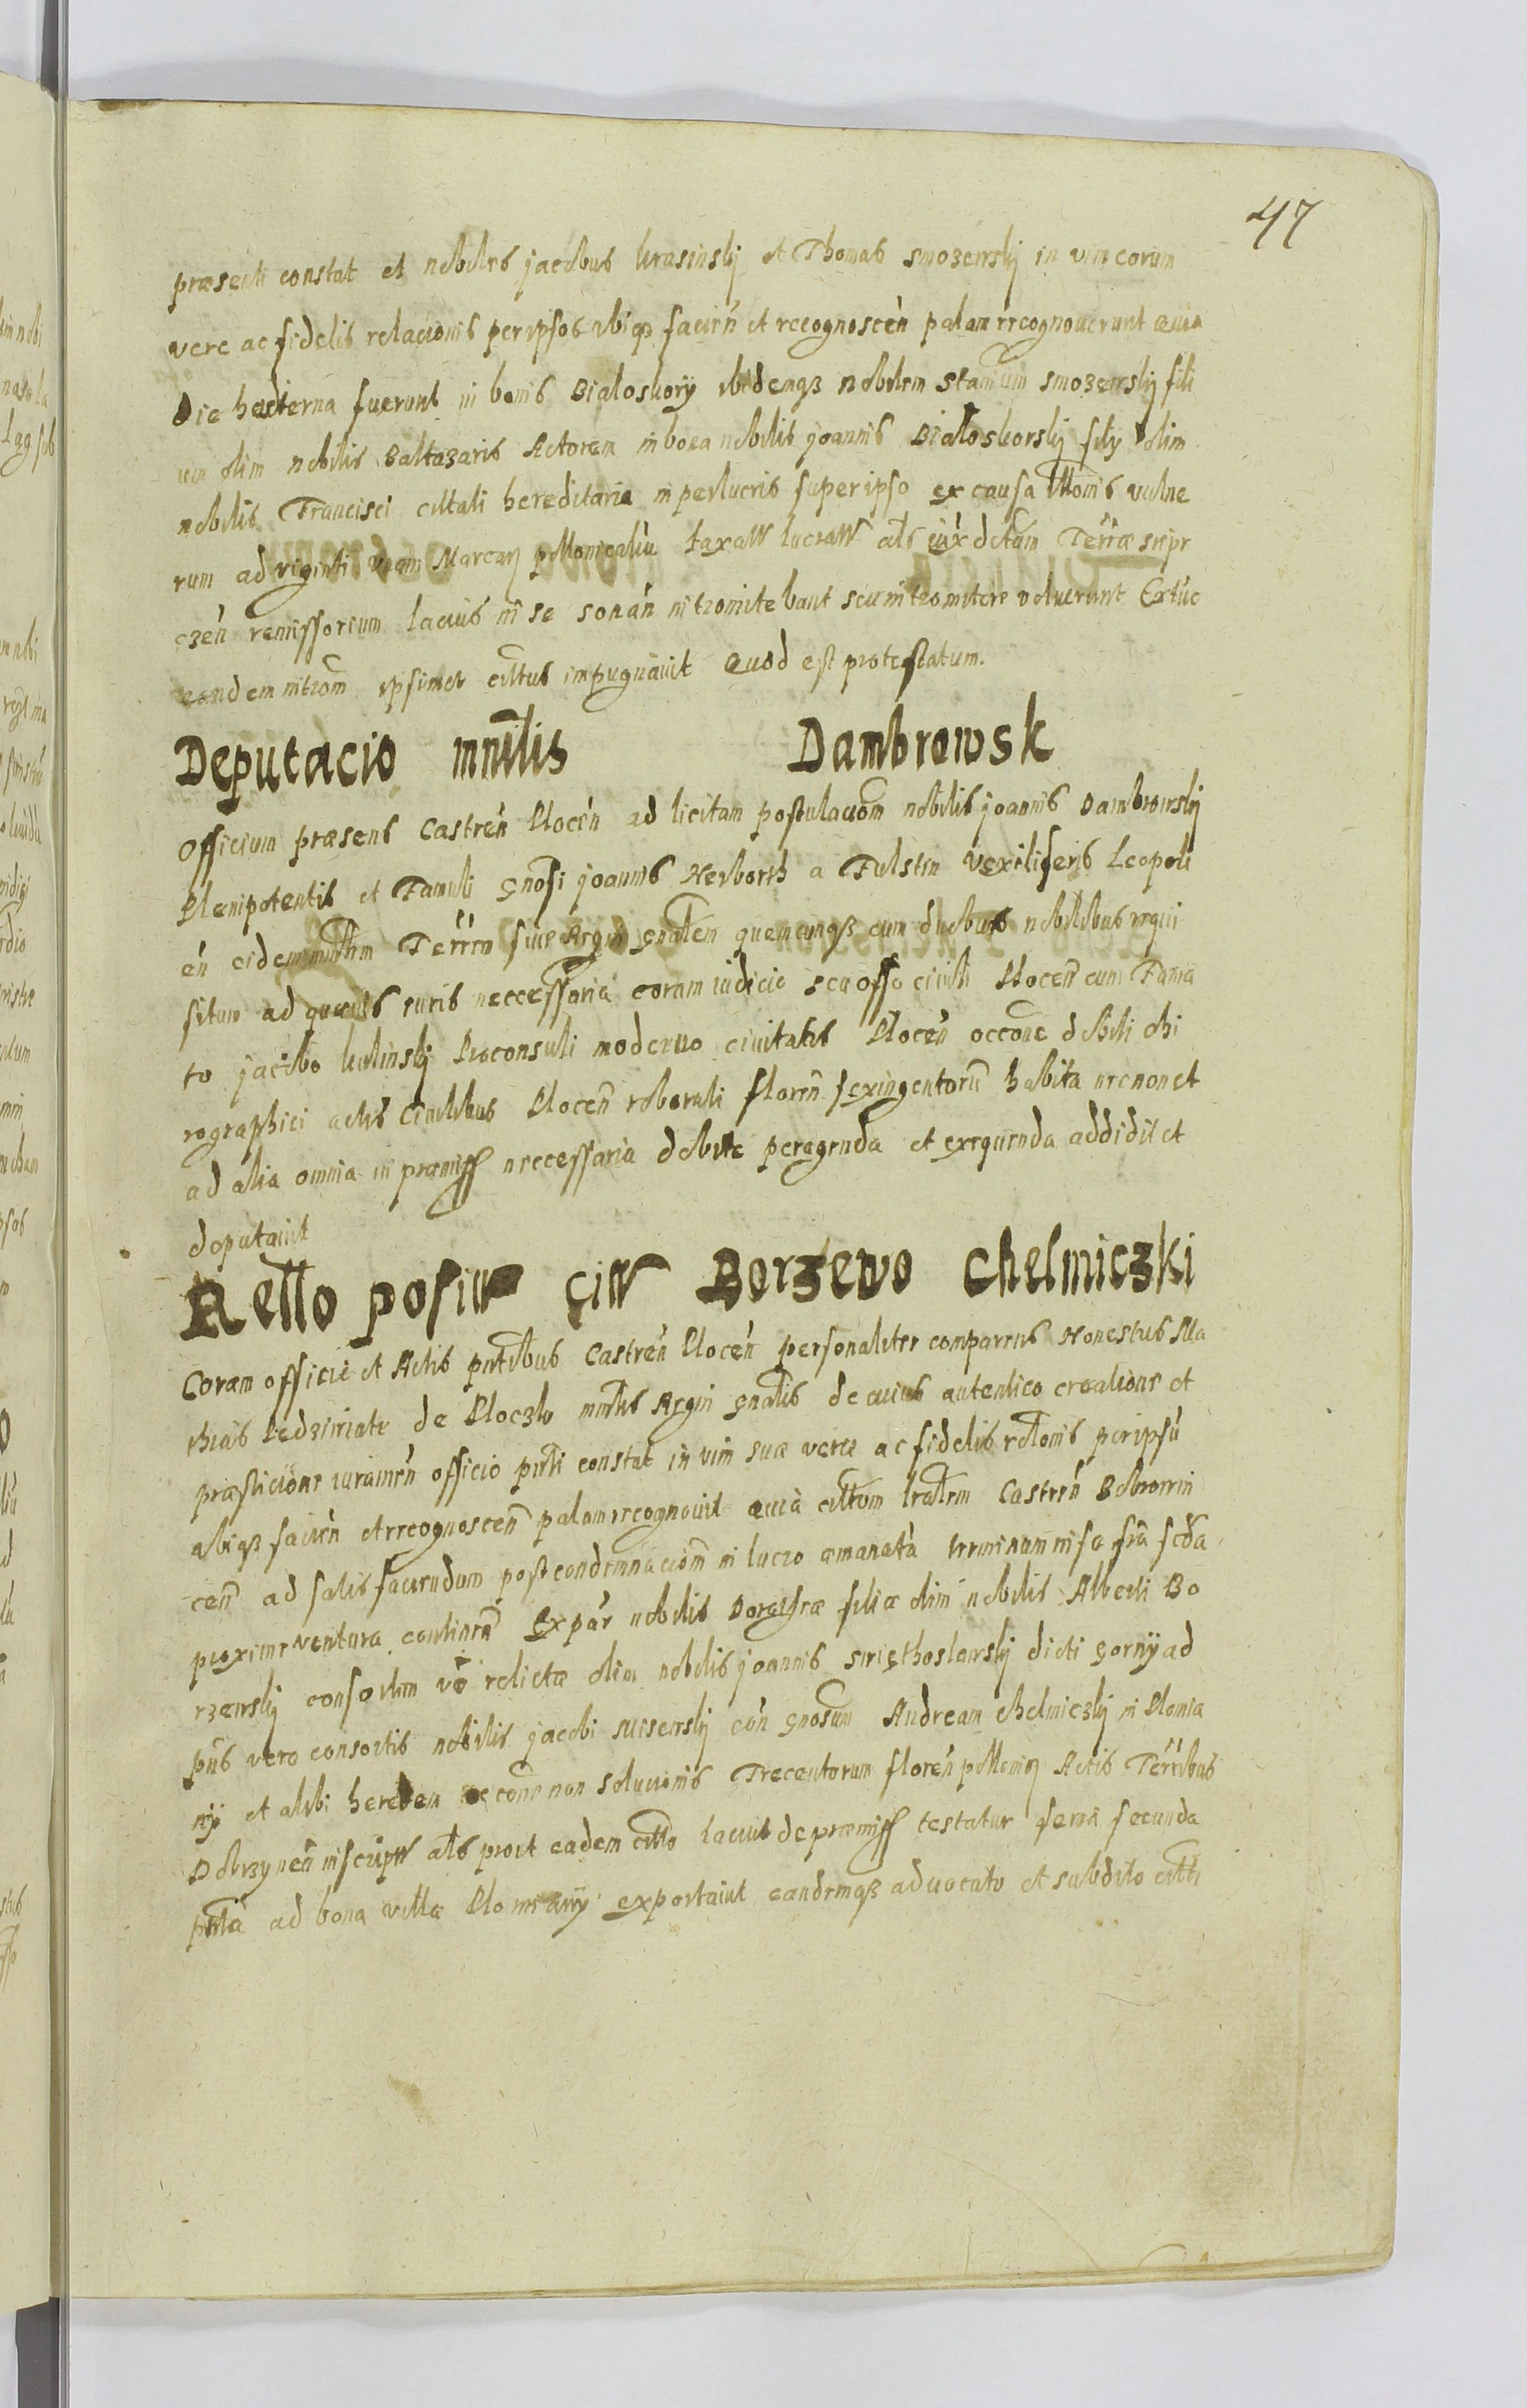 47
præsenti constat et nobiles jacobus krasinskj et Thomas smozewskj in vim eorum
vere ac fidelis relacionis per ipsos abiqz facien̄ et recognoscen̄ palam recognoverunt quia
Die hesterna fuerunt in bonis Bialoskory ibidemqz nobilem Stanum̄ smozewskj fili
um olim nobilis Baltazaris Actorem in bona nobilis joannis Białoskorskj filij olim
nobilis Francisci citati hereditaria in perlucris super ipso ex causa vulne
rum ad viginti unam Marcar pollonicaliū taxatt lucratt als iux̄ dctum Terræ sierp
czen̄ remissorium lacius in se sonan̄ intromitebant seu intromittere voluerunt Ex tuc
eandem introm̄ ipsimet cittus impugnavit Quod est protestatum.
Deputacio mnilis Dambrowsk
Officium præsens Castren̄ Plocen̄ ad licitam postulaciom̄ nobilis joannis Dambrowskj
Plenipotentis et Famuli gnosi joannis Herborth a Fulstin vexiliferis Leopoli
en̄ eidem Terrm sive Regni gnalem quemcunqz cum duobus nobilibus requi
situm ad quævis iuris neccessaria coram iudicio seu offo civili Plocen̄ cum Fama
to jacobo kulinskj Proconsuli moderno civitatis Plocen̄ occone debiti chi
rographici actis Civilibus Plocen̄ roborati floren̄ sexingentorū habita necnon et
ad alia omnia in præmiss neccessaria debite peragenda et exequenda addidit et
deputavit
Retto positt citt Borzewo Chelmiczki
Coram officio et Actis pntibus Castren̄ Plocen̄ personaliter comparens Honestus Ma
thias de Ploczko mnlis Regni gnalis de cuius autentico creatione et
præsticione iuramen̄ officio pnti constat in vim suæ veræ ac fidelis rettonis per ipsū
abiqz facien̄ et recognoscen̄ palam recognovit quia cittom lratem Castren̄ Bobrowni
cen̄ ad satisfaciendum post condemnaciom̄ in lucro emanatā terminum in se fra scda
proxime ventura continen̄ Ex par nobilis Dorotheæ filiæ olim nobilis Alberti Bo
rzewskj consortem vo relictæ olim nobilis joannis swiethoslawskj dicti gorny ad
pns vero consortis nobilis jacobi con̄ gnosum Andream chelmiczkj in Plomia
ny et alibi heredem occone non solucionis Trecentorum floren̄ pollonicr Actis Terribus
Dobrzynen̄ inscriptt als prout eadem citto lacius de præmiss testatur feria secunda
pnta ad bona villæ Plomiany exportavit eandemqz advocato et subdito citti